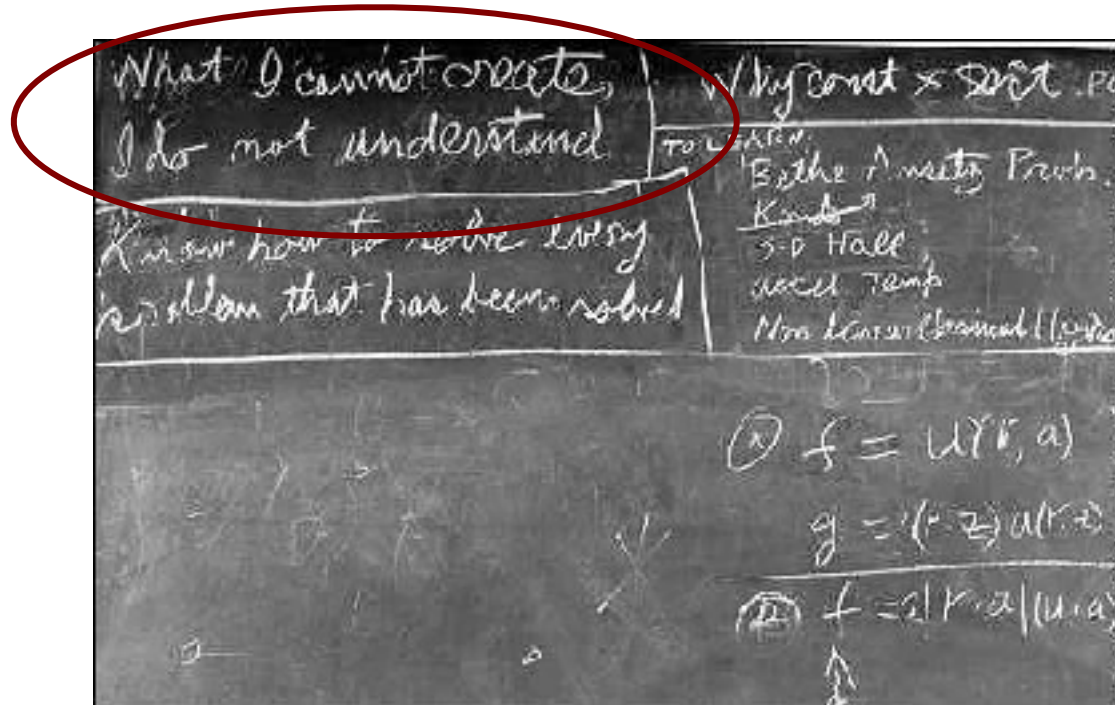 What I cannot create,
I do not understand
Know how to solve every
problem that has been solved
Why const × sort .PO
TO LEARN:
Bethe Ansatz Prob.
Kondo
2-D Hall
accel Temp
Non Linear Classical Hydro
f = u(r, a)
g = (r·z) u(r·z)
f = 2|r·a|(u·a)